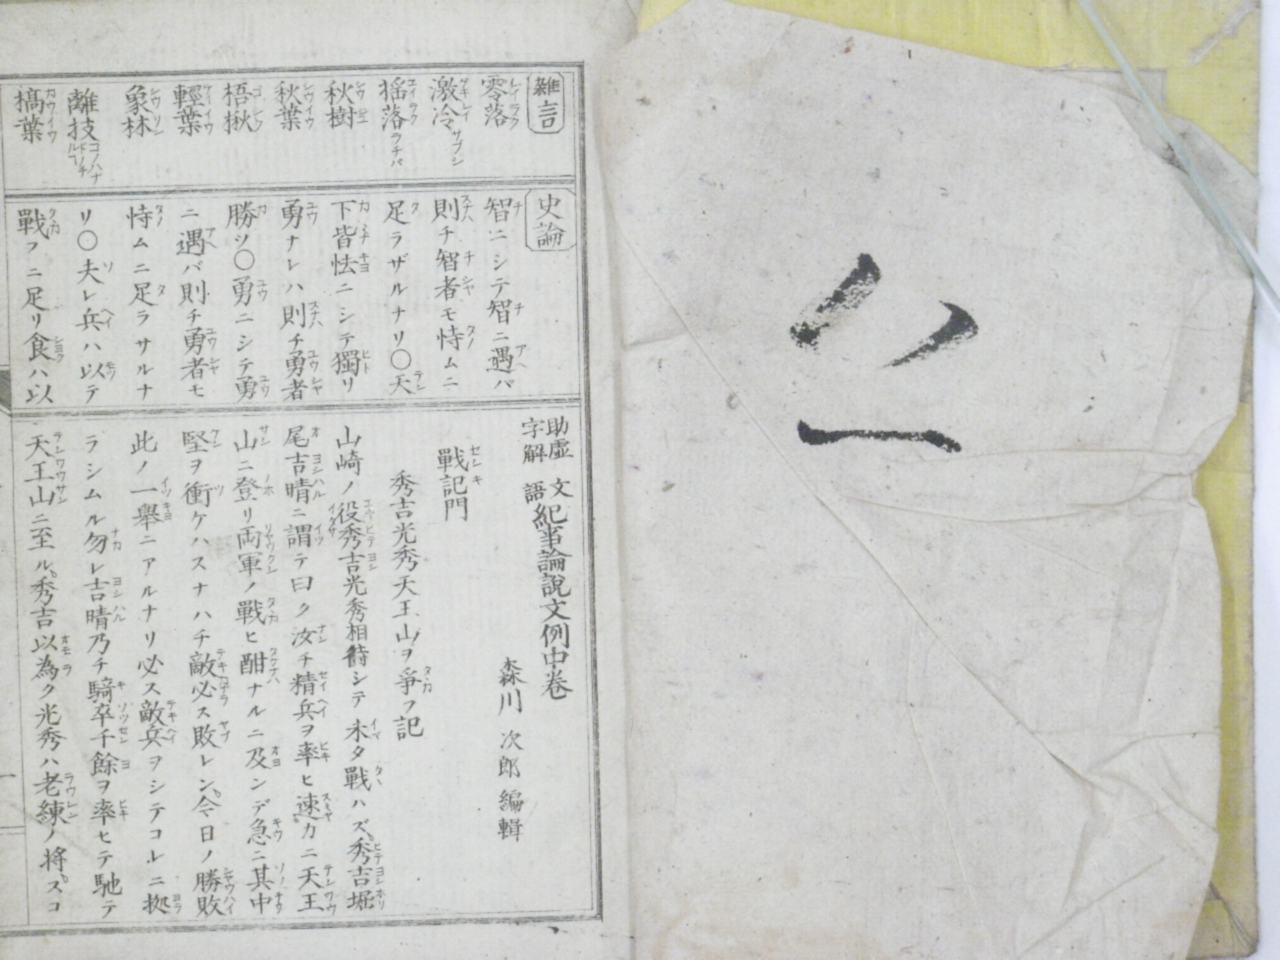 雑言
零落
激冷
揺落
秋樹
秋葉
梧楸
輕葉
象林
離技
槁葉
史論
智ニシテ智ニ遇バ
則チ智者モ恃ムニ
足ラザルナリ〇天
下皆怯ニシテ獨リ
勇ナレハ則チ勇者
勝ツ〇勇ニシテ勇
ニ遇バ則チ勇者モ
恃ムニ足ラサルナ
リ〇夫レ兵ハ以テ
戰フニ足リ食ハ以
助虚字解 文語 紀事論説文例中卷
森川 次郎 編輯
戰記門
秀吉光秀天王山ヲ爭フ記
山崎ノ役秀吉光秀相待シテ未タ戰ハズ秀吉堀
尾吉晴ニ謂テ曰ク汝チ精兵ヲ率ヒ速カニ天王
山ニ登リ両軍ノ戰ヒ酣ナルニ及ンデ急ニ其中
堅ヲ衝ケハスナハチ敵必ス敗レン今日ノ勝敗
此ノ一舉ニアルナリ必ス敵兵ヲシテコレニ拠
ラシムル勿レ吉晴乃チ騎卒千餘ヲ率ヒテ馳テ
天王山ニ至ル秀吉以為ク光秀ハ老練ノ将スコ